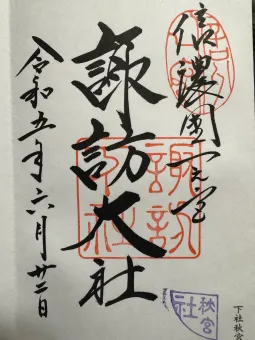 信濃國一之宮
諏訪大社
令和五年六月廿二日
諏訪大社
秋宮
社
下社秋宮